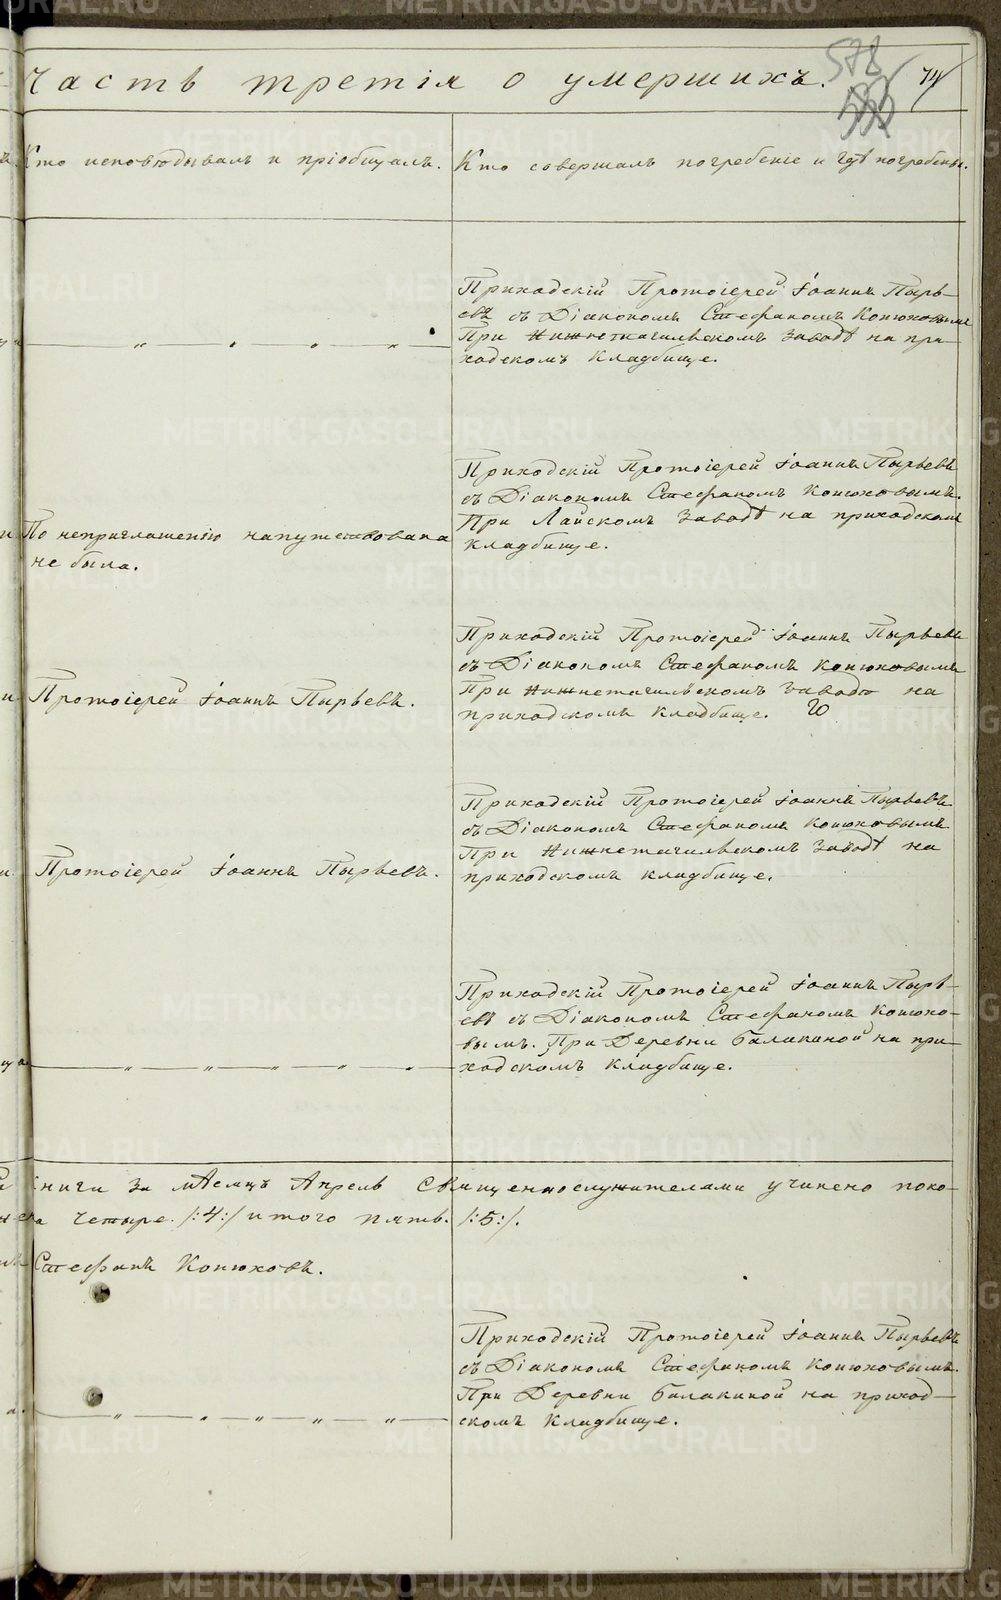 Часть третія о умершихъ.
578
74
Кто исповѣдывалъ и пріобщалъ.
Кто совершалъ погребеніе и гдѣ погребены.
Приходскій Протоіерей Іоаннъ Пырь-
евъ съ Діакономъ Стефаномъ Конюховымъ
При Нижнетагильскомъ заводѣ на при-
ходскомъ кладбище.
По неприглашенію напутствована
не была.
Приходскій Протоіерей Іоаннъ Пырьевъ
съ Діакономъ Стефаномъ Конюховымъ.
При Лайскомъ заводѣ на приходскомъ
кладбище.
Протоіерей Іоаннъ Пырьевъ.
Приходскій Протоіерей Іоаннъ Пырьевъ
съ Діакономъ Стефаномъ Конюховымъ
При Нижнетагильскомъ заводѣ на
приходскомъ кладбище.
Протоіерей Іоаннъ Пырьевъ.
Приходскій Протоіерей Іоаннъ Пырьевъ
съ Діакономъ Стефаномъ Конюховымъ
При Нижнетагильскомъ заводѣ на
приходскомъ кладбище.
Приходскій Протоіерей Іоаннъ Пырь-
евъ съ Діакономъ Стефаномъ Конюхо-
вымъ. При Деревни Балакиной на при-
ходскомъ кладбище.
книги за мѣсяцъ Апрель священнослужителами учинено поко-
на четыре. /:4:/ итого пять. /:5:/.
Стефанъ Конюховъ.
Приходскій Протоіерей Іоаннъ Пырьевъ
съ Діакономъ Стефаномъ Конюховымъ.
При Деревни Балакиной на приход-
скомъ кладбище.
METRIKI.GASO-URAL.RU